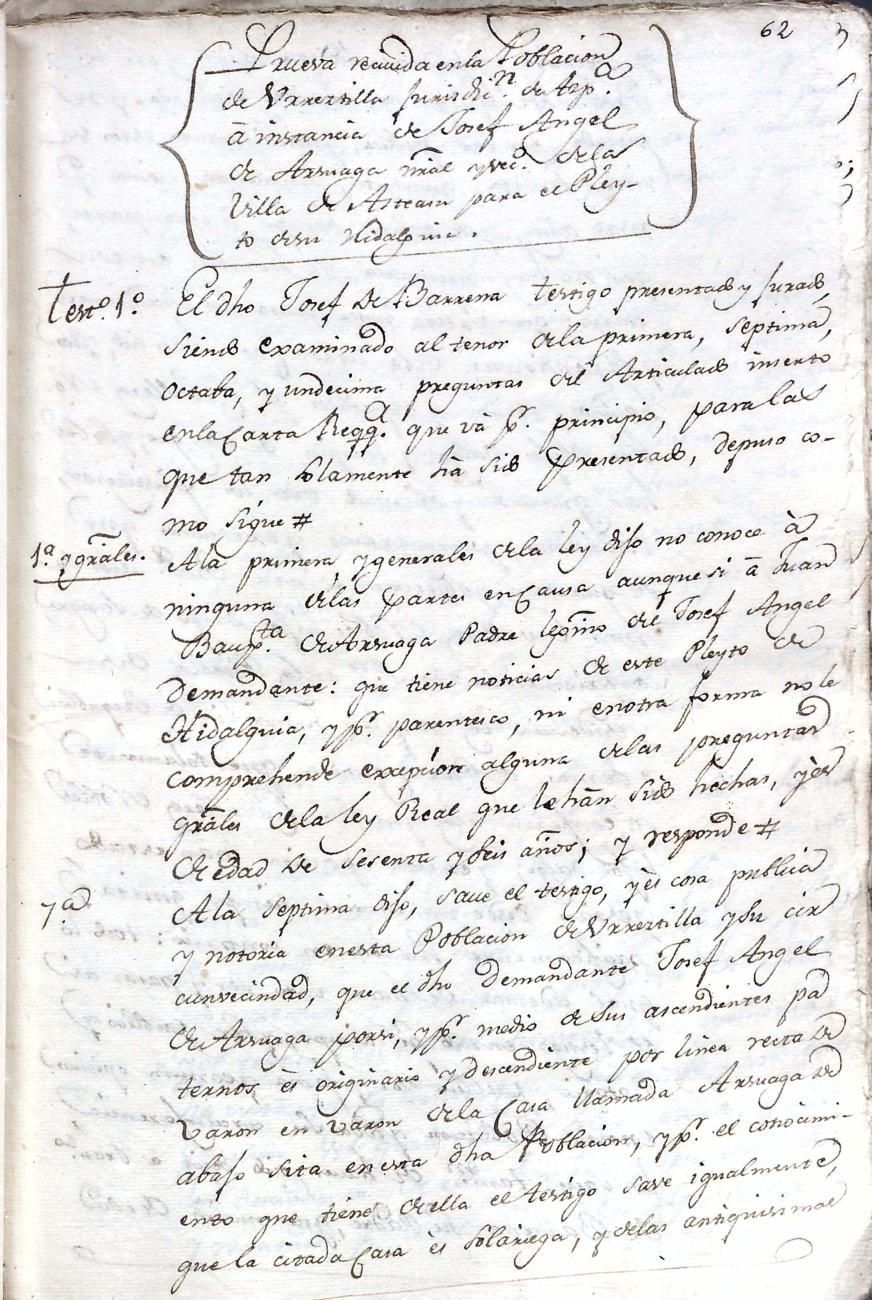 62
Prueva recivida en la Poblacion
de Vrrestilla Jurisdi.n de Azp.a
â instancia de Josef Angel
de Arsuaga nrâl y vec.o de la
Villa de Asteasu para el Pley-
to de su Hidalguia.
Test.o 1.o El dho Josef de Barrena testigo presentado y Jurado,
siendo examinado al tenor de la primera, septima,
octaba, y undecima preguntas del Articulado inserto
en la Carta Reqq.a que và p.r principio, para las
que tan solamente hà sido presentado, depuso co-
mo sigue #
1.a y grâles. A la primera, y generales de la ley dijo no conoce à
ninguna de las partes en Causa aunque si â Juan
Baup.ta de Arsuaga Padre lexmo del Josef Angel
Demandante: que tiene noticias de este Pleyto de
Hidalguia, y p.r parentesco, ni en otra forma no le
comprehende exepcion alguna de las preguntas
grâles de la ley Real que le hàn sido hechas, y es
de edad de sesenta y seis años; y responde #
7.a A la septima dijo, save el testigo, y ès cosa publica
y notoria en esta Poblacion de Vrrestilla y su cir
cunvecindad, que el dho Demandante Josef Angel
de Arsuaga por si, y p.r medio de sus ascendientes pa
ternos ès originario y descendiente por linea recta de
varon en varon de la Casa llamada Arsuaga de
abajo sita en esta dha Poblacion, y p.r el conocimi-
ento que tiene de ella el testigo save igualmente,
que la citada Casa ès solariega, y de las antiquisimas